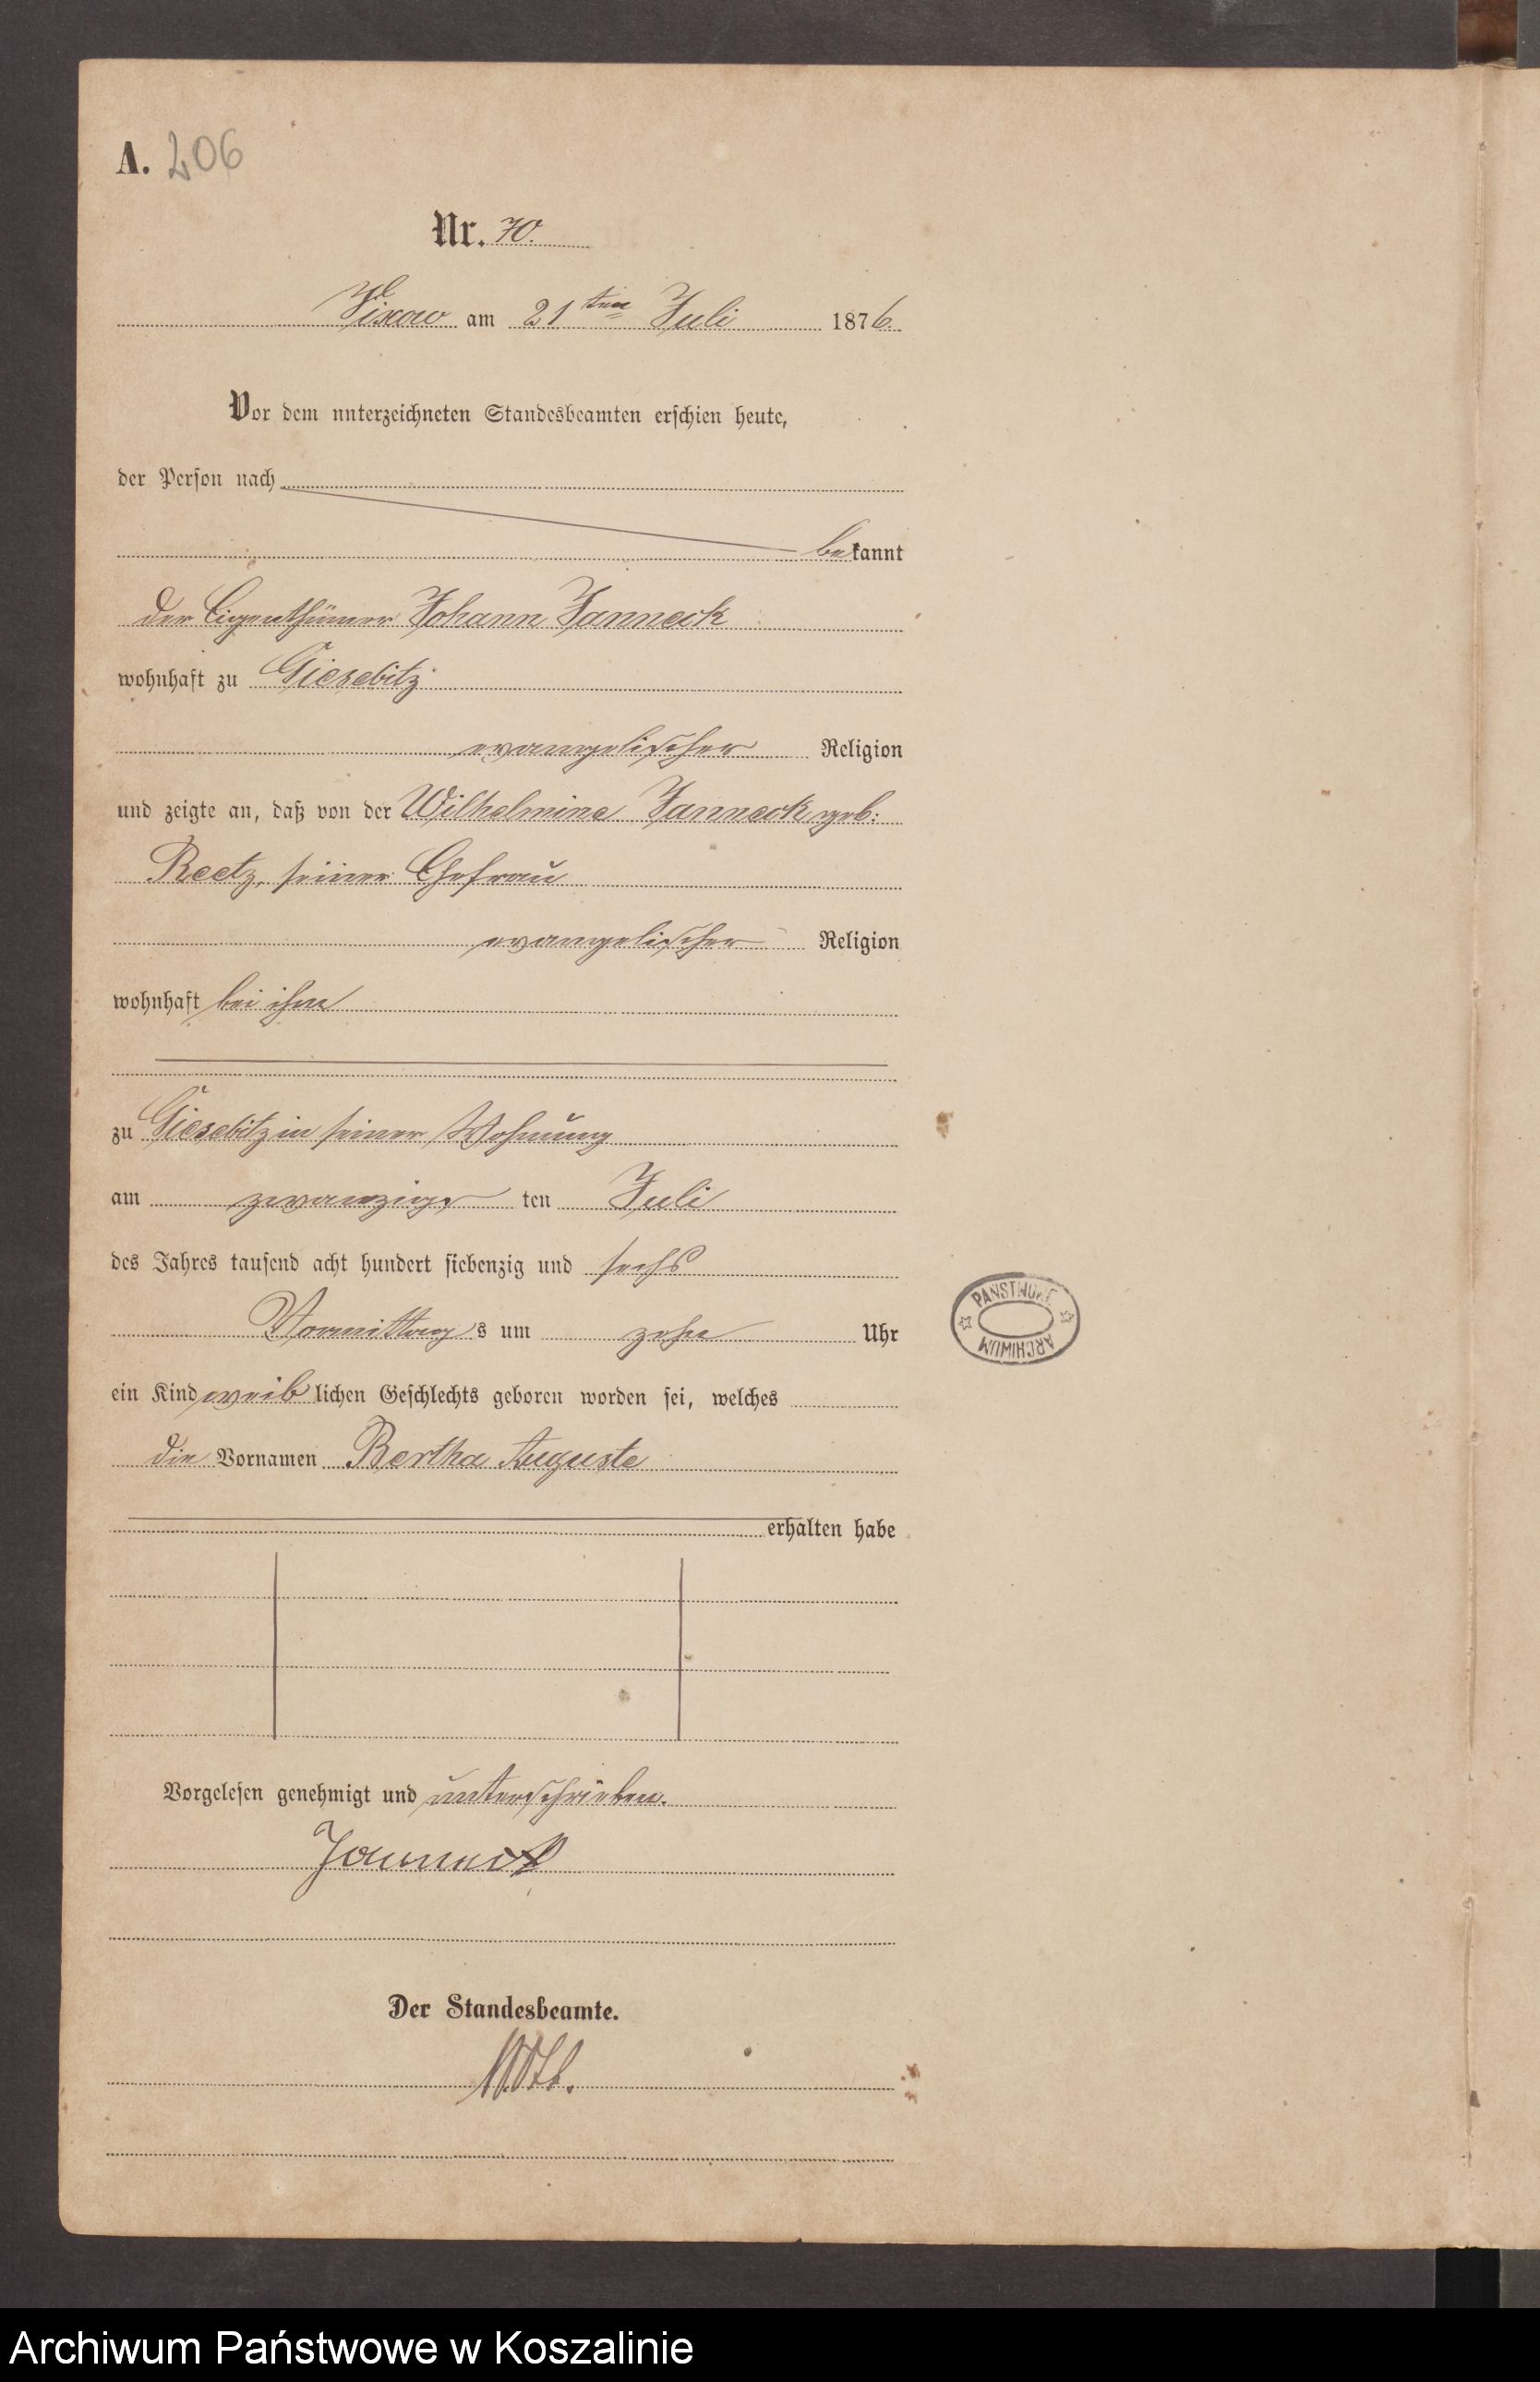 A. 206
Nr. 70.
Vixow am 21ten Juli 1876.
Vor dem unterzeichneten Standesbeamten erschien heute,
der Person nach
bekannt
der Eigenthümer Johann Janneck
wohnhaft zu Giesebitz
evangelischer Religion
und zeigte an, daß von der Wilhelmine Janneck geb:
Reetz, seiner Ehefrau
evangelischer Religion
wohnhaft bei ihm
zu Giesebitz in seiner Wohnung
am zwanzigs ten Juli
des Jahres tausend acht hundert siebenzig und sechs
Vormittags um zehn Uhr
ein Kind weiblichen Geschlechts geboren worden sei, welches
die Vornamen Bertha Auguste
erhalten habe
PAŃSTWOWE
ARCHIWUM
Vorgelesen genehmigt und unterschrieben.
Janneck
Der Standesbeamte.
Archiwum Państwowe w Koszalinie